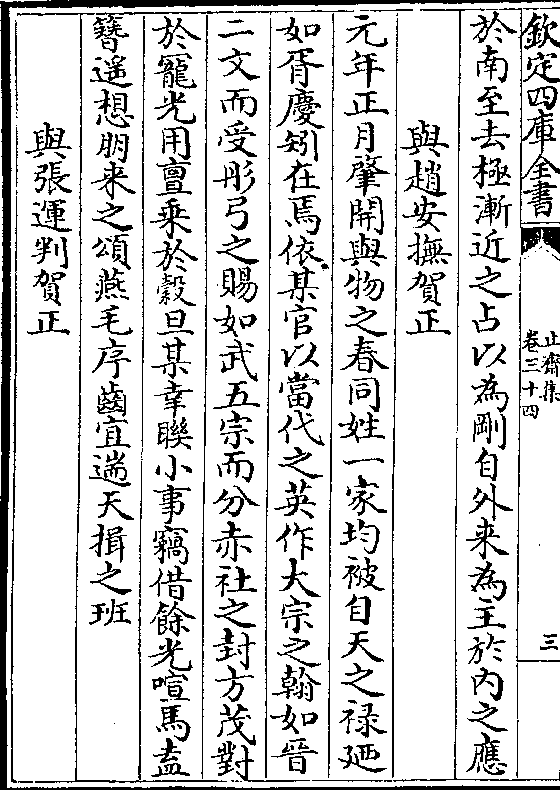 欽定四庫全書
止齋集
卷三十四
三
於南至去極漸近之占以為剛自外来為主於内之應
與趙安撫賀正
元年正月肇開與物之春同姓一家均被自天之禄廼
如胥慶矧在焉依某官以當代之英作大宗之翰如晉
二文而受彤弓之賜如武五宗而分赤社之封方茂對
於寵光用亶乗於穀旦某幸聫小事竊借餘光喧馬盍
簪遥想朋来之頌燕毛序齒宜遄天揖之班
與張運判賀正